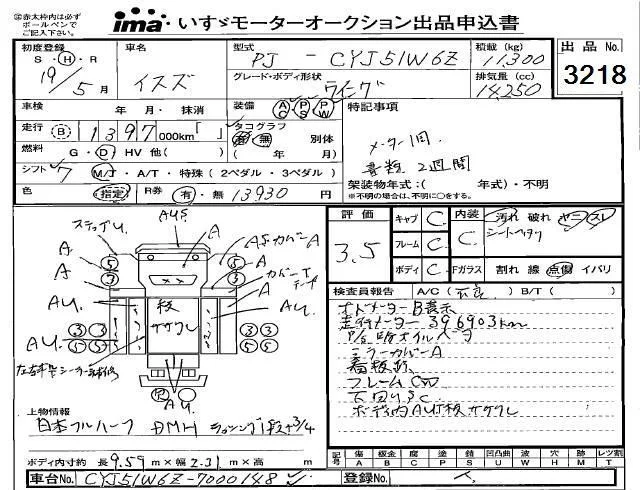 ※赤太枠内は必ず
ボールペンで
ご記入下さい。
ima いすゞモーターオークション出品申込書
初度登録
S・H・R
19/5月
車名
イスズ
型式
PJ - CYJ51W6Z
積載 (kg)
11,300
出品 No.
3218
グレード・ボディ形状
ウイング
排気量 (cc)
14,250
車検 年・月・抹消
装備 AC PS PW
特記事項
走行 B 1397 000km「 」
タコグラフ
有・無 別体
( 年 月)
メーター1回
書類2週間
燃料 G・D HV 他( )
シフト 7 M/J・A/T・特殊(2ペダル・3ペダル)
架装物年式:( 年式)・不明
※不明の場合は、不明に○をする。
色 (指定) R券 有・無 13930 円
ステップU.
AUS
A
A
A
ASカバーA
カバーT
テープ
A
AU.
AU.
AU.
AU.
板
ササクレ
5
5
3
3
3
3
5
5
3
3
5
5
評価
3.5
キャブ C
フレーム C
ボディ C
内装 C
汚れ 破れ ヤニ スレ
シートヘタリ
Fガラス 割れ 線 点傷 イバリ
検査員報告 A/C( 不良 ) B/T( )
オドメーターB表示
走行メーター 396903km
ミラーカバーA
看板跡
フレームC
下回りSC
ボディ内AU床板ササクレ
上物情報
日本フルハーフ DMH ラッシング1段+3/4
ボディ内寸約 長 9.59 m×幅 2.31 m×高 m
記号 傷 板金 腐 塗 錆 凹凸曲 波 穴 飛石 レツ割
A B C P S U W H M T
車台No. CYJ51W6Z-7000148
登録No.